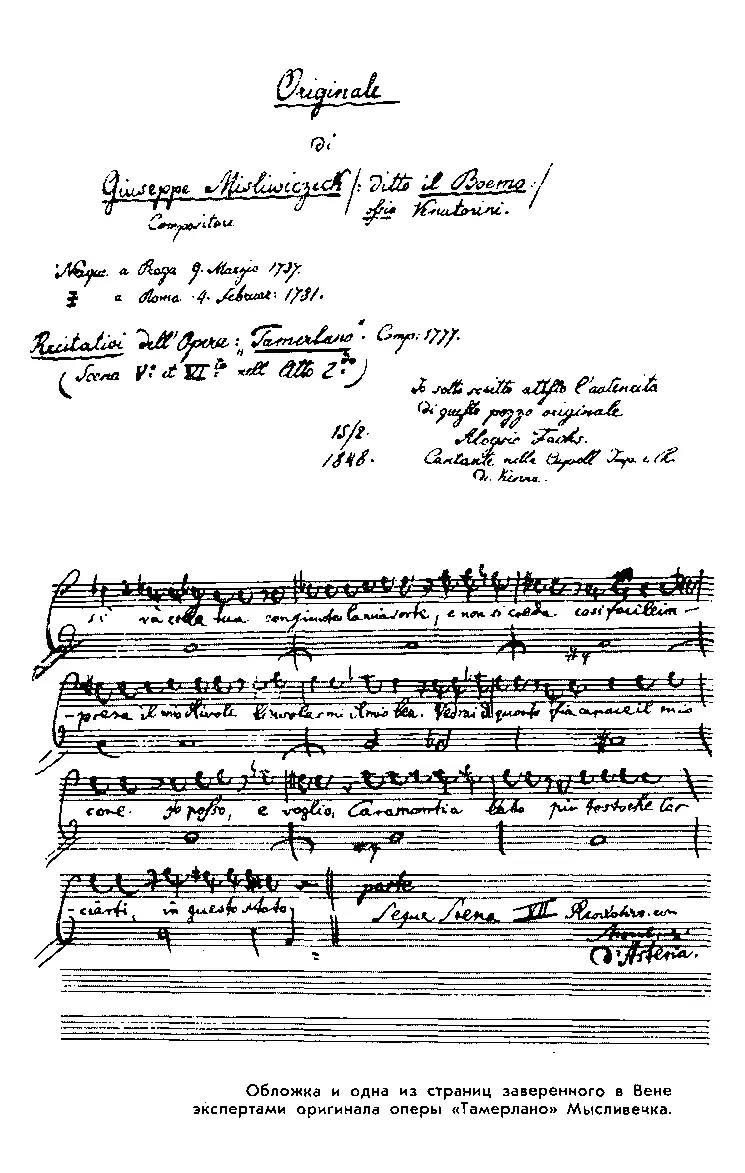 Originale
di
Giuseppe Misliwiczeck /: ditto il Boemo :/
Compositore ossia Venatorini.
Nacque a Praga 9. Marzio 1737.
a Roma 4. Februar: 1781.
Recitativi dell'Opera: „Tamerlano". Comp: 1777.
(Scena V.ª et VI.ta nell Atto 2.do)
Io sotto scritto attesto l'autencita
di questo pezzo originale
15/2. Aloysio Fuchs.
1848. Cantante nella Capell Imp. e R.
di Vienna.
si và colla tua congiunta la mia sorte, e non si creda così facil im-
-presa il mio . Vedrai di quanto sia capace il mio
core. Io posso, e voglio, Cara più tosto che las-
-ciarti, in questo stato parte
Segue Scena VII Recitativo con
d'Asteria.
Обложка и одна из страниц заверенного в Вене
экспертами оригинала оперы «Тамерлано» Мысливечка.